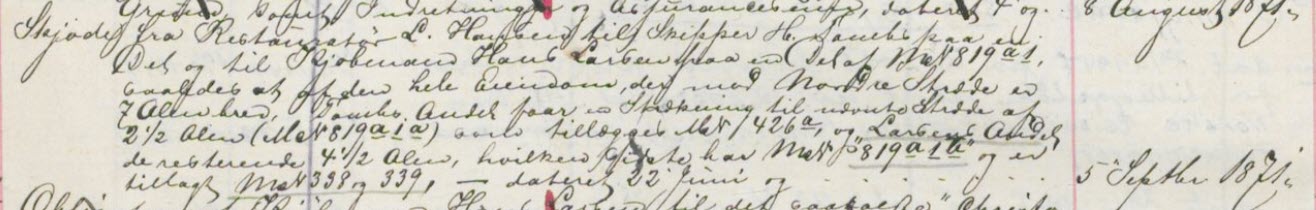 Grund, samt Indretninger og Assurancesum, dateret 4 og 8 August 1871.
Skjøde fra Restauratør L. Hansen til Skipper H. paa en
Del og til Kjøbmand Hans Larsen paa en Del af MatN 819a1,
saaledes at af den hele Eiendom, der mod Nordre Stræde er
7 Alen bred, Andel faar en Strækning til nævnte Stræde af
2 1/2 Alen (MatN 819a1a) som tillægges MatN 426a, og Larsens Andel
de resterende 4 1/2 Alen, hvilken har MatN "819a1b" og er
tillagt MatN 338 og 339, — dateret 22 Juni og 5 Septbr 1871.
Hans Larsen til det